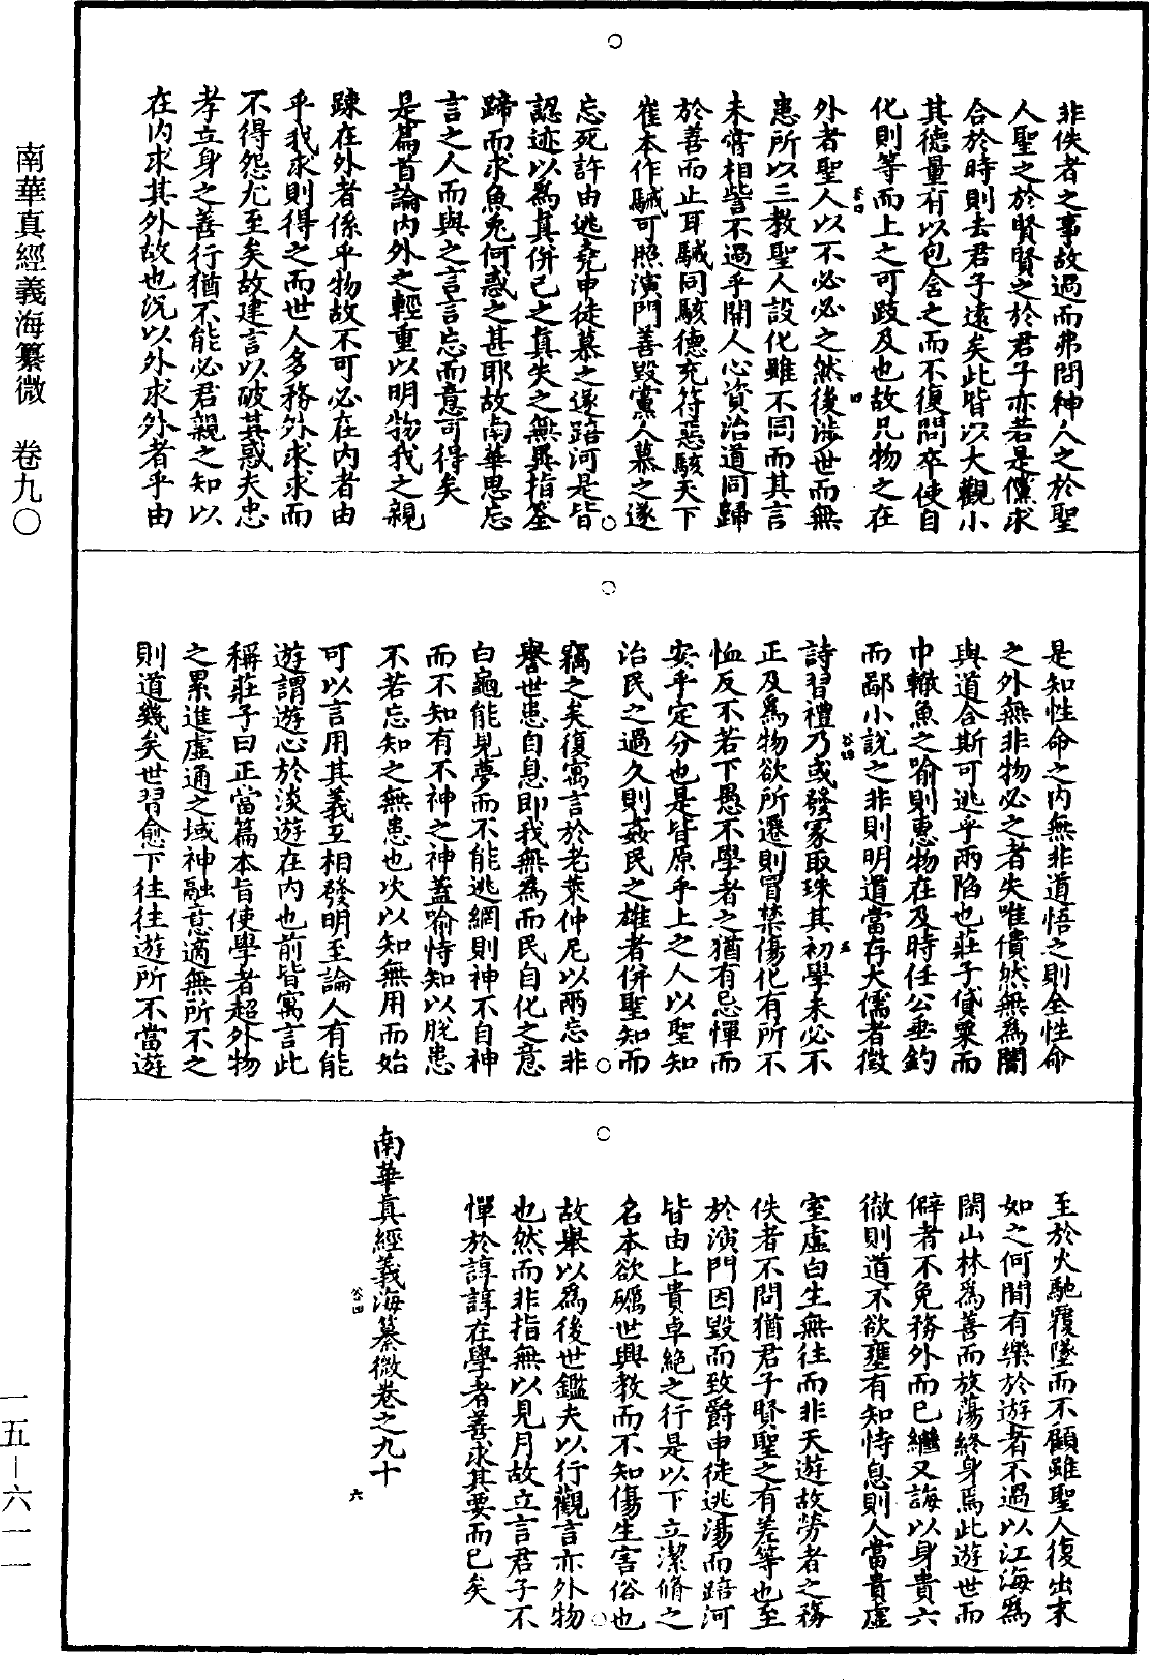 南華真經義海纂微　卷九〇
非佚者之事故過而弗問神人之於聖
人聖之於賢賢之於君子亦若是儻求
合於時則去君子遠矣此皆以大觀小
其德量有以包含之而不復問卒使自
化則等而上之可跂及也故凡物之在
外者聖人以不必必之然後涉世而無
患所以三教聖人設化雖不同而其言
未嘗相訾不過乎開人心資治道同歸
於善而止耳駴同駭德充符惡駭天下
崔本作駴可照演門善毀黨人慕之遂
忘死許由逃堯申徒慕之遂踣河是皆
認迹以為真併己之真失之無異指筌
蹄而求魚兔何惑之甚耶故南華思忘
言之人而與之言言忘而意可得矣
是篇首論內外之輕重以明物我之親
踈在外者係乎物故不可必在內者由
乎我求則得之而世人多務外求求而
不得怨尤至矣故建言以破其惑夫忠
孝立身之善行猶不能必君親之知以
在內求其外故也況以外求外者乎由
是知性命之內無非道悟之則全性命
之外無非物必之者失唯僓然無為闇
與道合斯可逃乎兩陷也莊子貸粟而
中轍魚之喻則惠物在及時任公垂釣
而鄙小說之非則明道當存大儒者徵
詩習禮乃或發冢取珠其初學未必不
正及為物欲所遷則冒禁傷化有所不
恤反不若下愚不學者之猶有忌憚而
安乎定分也是皆原乎上之人以聖知
治民之過久則姦民之雄者併聖知而
竊之矣復寓言於老萊仲尼以兩忘非
譽世患自息即我無為而民自化之意
白龜能見夢而不能逃網則神不自神
而不知有不神之神蓋喻恃知以脫患
不若忘知之無患也次以知無用而始
可以言用其義互相發明至論人有能
遊謂遊心於淡遊在內也前皆寓言此
稱莊子曰正當篇本旨使學者超外物
之累進虛通之域神融意適無所不之
則道幾矣世習愈下往往遊所不當遊
至於火馳覆墜而不顧雖聖人復出末
如之何間有樂於遊者不過以江海為
閑山林為善而放蕩終身焉此遊世而
僻者不免務外而已繼又誨以身貴六
徹則道不欲壅有知恃息則人當貴虛
室虛白生無往而非天遊故勞者之務
佚者不問猶君子賢聖之有差等也至
於演門因毀而致爵申徒逃湯而踣河
皆由上貴卓絕之行是以下立潔脩之
名本欲礪世興教而不知傷生害俗也
故舉以為後世鑑夫以行觀言亦外物
也然而非指無以見月故立言君子不
憚於諄諄在學者善求其要而已矣
南華真經義海纂微卷之九十
一五—六一一